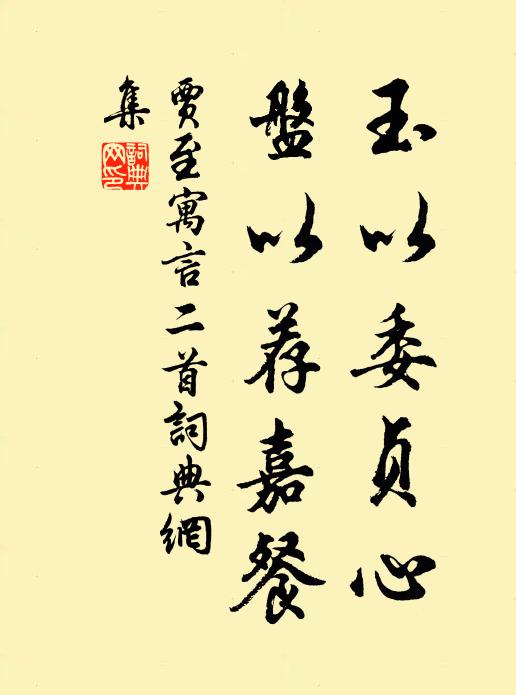 玉以委贞心
盤以荐嘉餐
賈至寓言二首詞典網
集
詞典網印